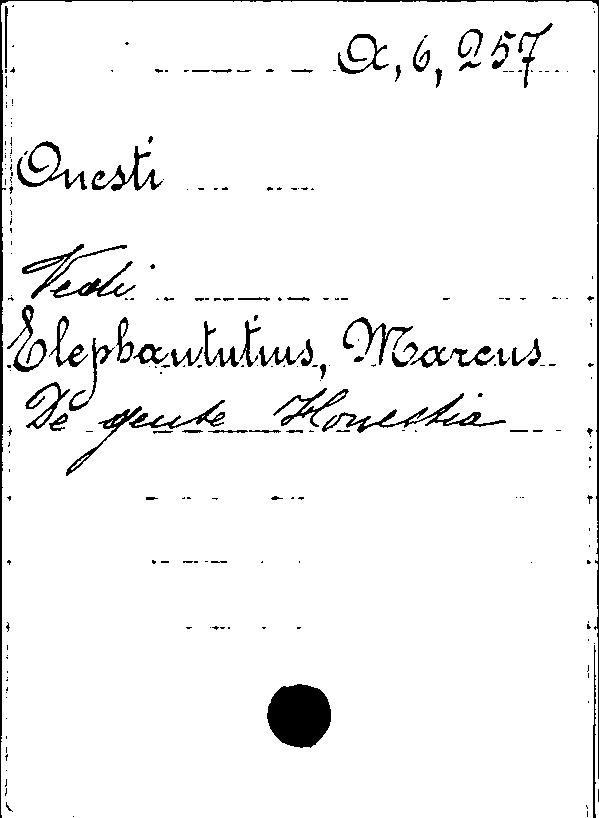 α, 6, 257
Onesti
Vedi
Elephantutius, Marcus
De gente Honestia